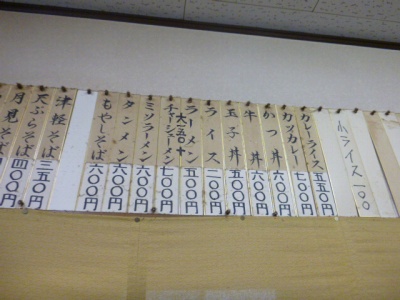 小ライス一〇〇
カレーライス五五〇円
カツカレー七〇〇円
かつ丼六〇〇円
牛丼六〇〇円
玉子丼五〇〇円
ライス二〇〇円
ラーメン五〇〇円
大一五〇十
チャーシューメン七〇〇円
ミソラーメン六〇〇円
タンメン六〇〇円
もやしそば六〇〇円
津軽そば三五〇円
天ぷらそば四〇〇円
月見そば四〇〇円